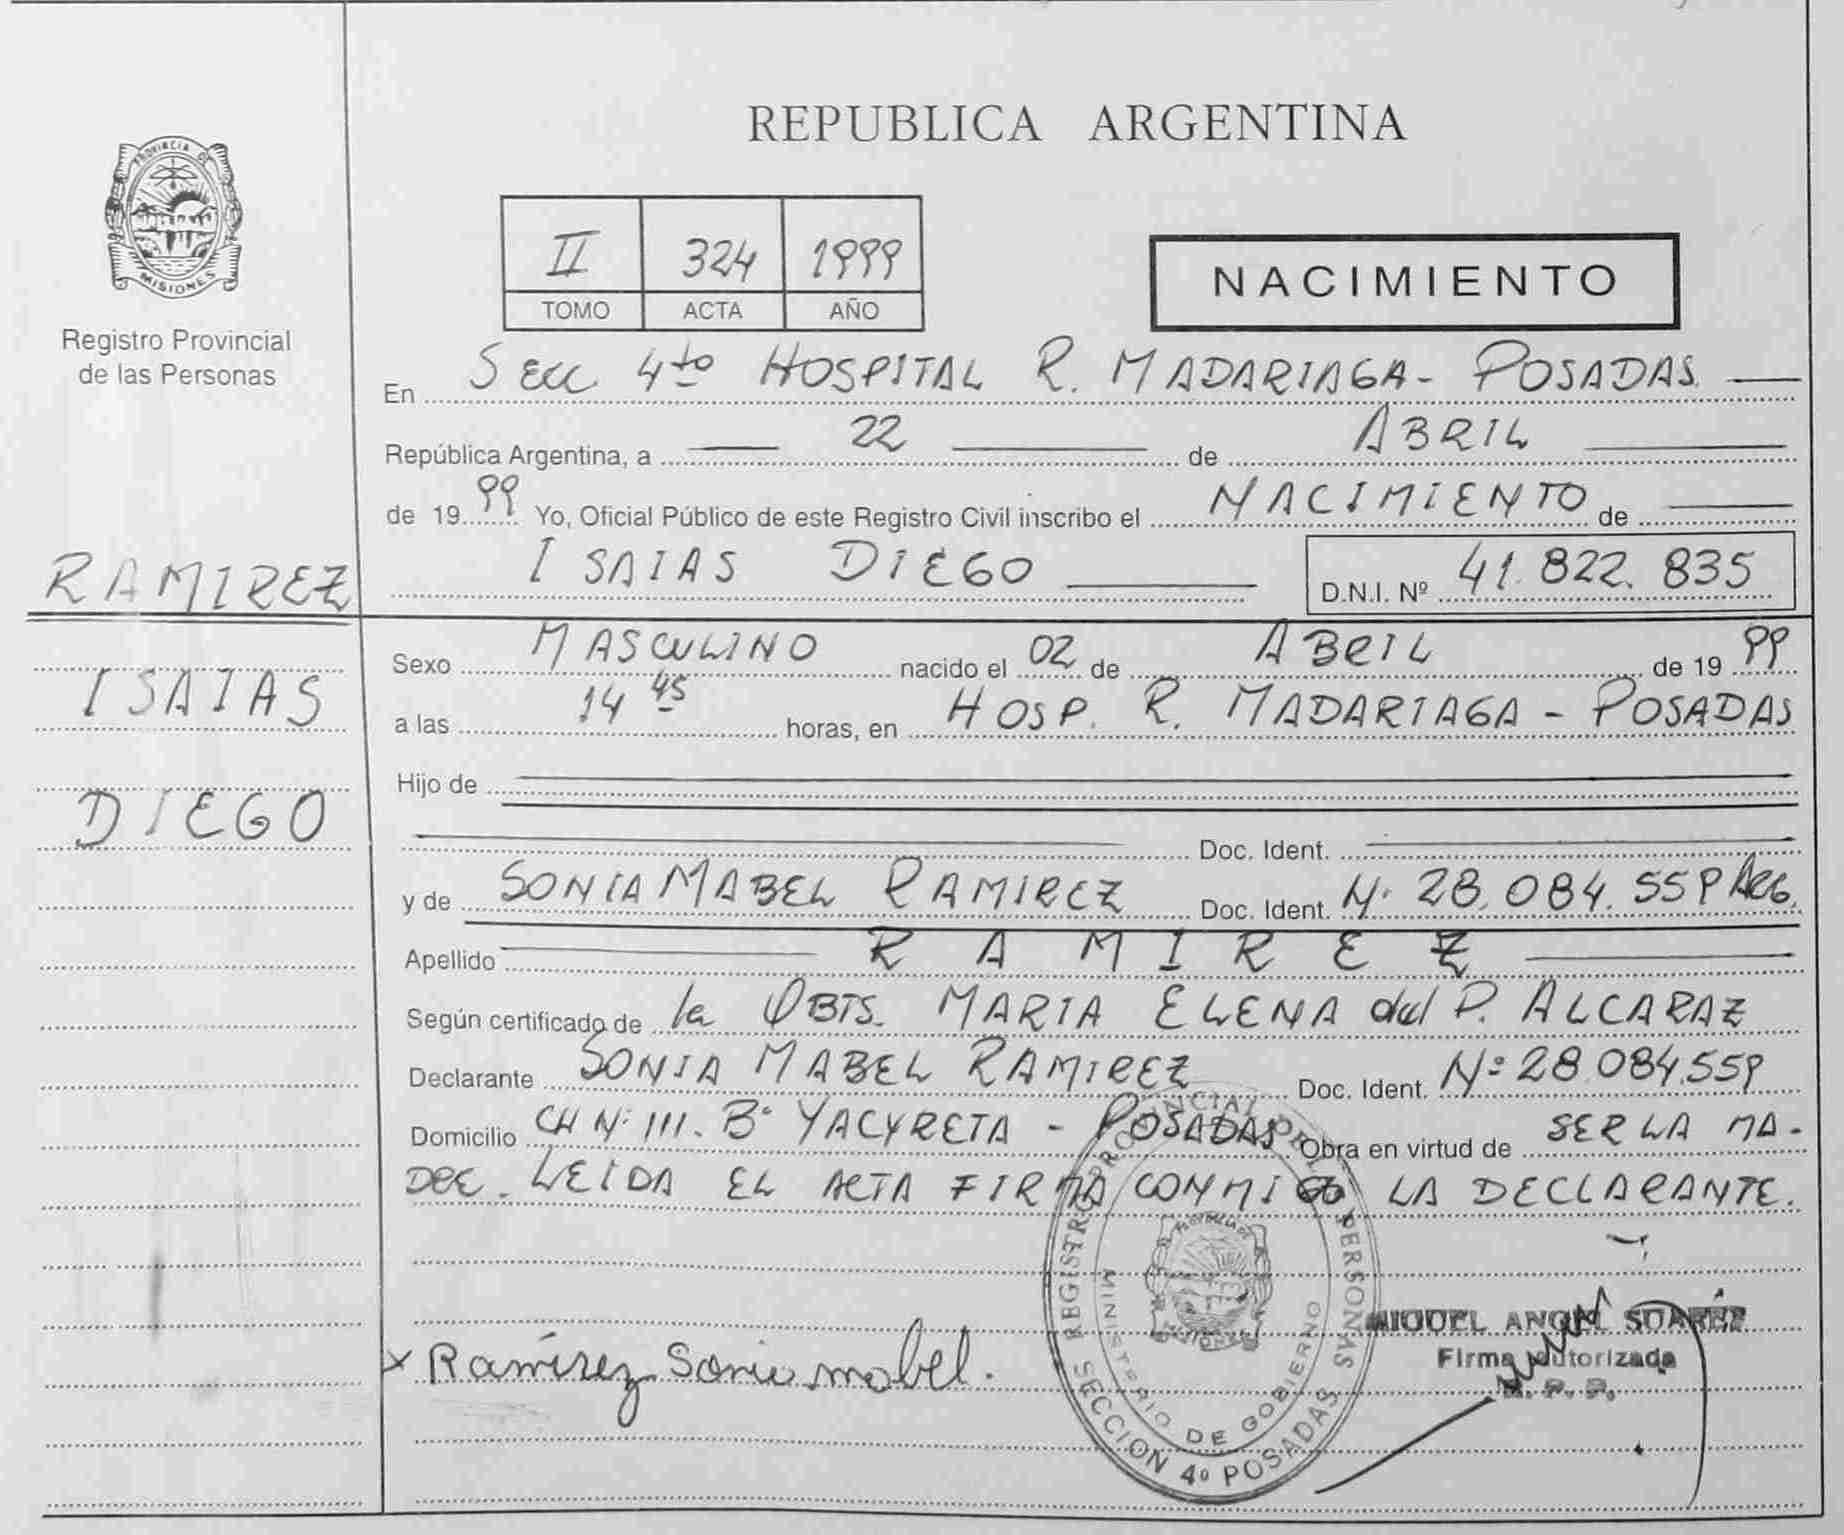 REPUBLICA ARGENTINA
PROVINCIA DE
MISIONES
Registro Provincial
de las Personas
II 324 1999
TOMO ACTA AÑO
NACIMIENTO
En Secc 4to HOSPITAL R. MADARIAGA - POSADAS.
República Argentina, a 22 de ABRIL
de 1999 Yo, Oficial Público de este Registro Civil inscribo el NACIMIENTO de
ISAIAS DIEGO D.N.I. Nº 41.822.835
RAMIREZ
ISAIAS
DIEGO
Sexo MASCULINO nacido el 02 de ABRIL de 1999
a las 14 45 horas, en HOSP. R. MADARIAGA - POSADAS
Hijo de
Doc. Ident.
y de SONIA MABEL RAMIREZ Doc. Ident. Nº 28.084.559 ARG.
Apellido RAMIREZ
Según certificado de la OBTS. MARIA ELENA del P. ALCARAZ
Declarante SONIA MABEL RAMIREZ Doc. Ident. Nº 28.084.559
Domicilio CH Nº 111. Bº YACYRETA - POSADAS Obra en virtud de SER LA MA-
DRE. LEIDA EL ACTA FIRMA CONMIGO LA DECLARANTE.
REGISTRO PROVINCIAL DE LAS PERSONAS
MINISTERIO DE GOBIERNO
SECCION 4º POSADAS
x Ramírez Sonia mabel.
MIGUEL ANGEL SUAREZ
Firma Autorizada
R. P. P.